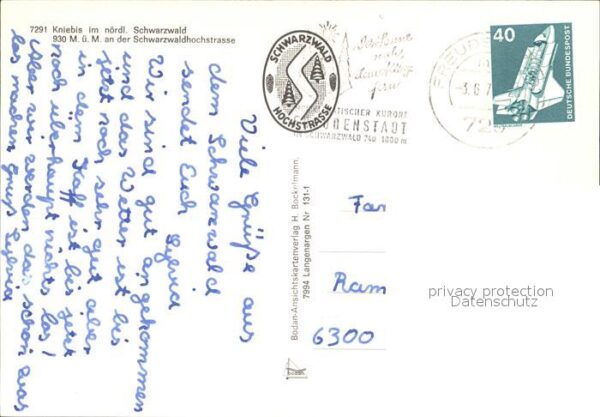 7291 Kniebis im nördl. Schwarzwald
930 M. ü. M. an der Schwarzwaldhochstrasse
SCHWARZWALD
HOCHSTRASSE
KURORT
IM SCHWARZWALD 740 1000 m
40
DEUTSCHE BUNDESPOST
Viele Grüße aus
dem Schwarzwald
sendet Euch Sylvia
Wir sind gut angekommen
und das Wetter ist bis
jetzt noch sehr gut aber
in dem Kaff ist bis jetzt
noch überhaupt nichts los!
Aber wir werden das schon was
los machen Gruß Sylvia
Bodan-Ansichtskartenverlag H. Bockelmann,
7994 Langenargen Nr. 131-1
Fam
Ram
6300
privacy protection
Datenschutz